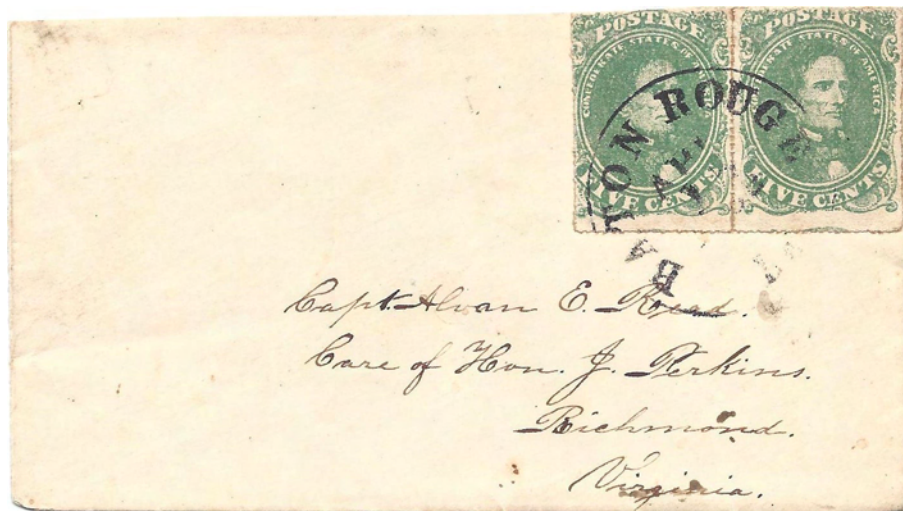 POSTAGE
CONFEDERATE STATES OF AMERICA
FIVE CENTS
POSTAGE
CONFEDERATE STATES OF AMERICA
FIVE CENTS
BATON ROUGE
Capt. Alvan E. Read.
Care of Hon. J. Perkins.
Richmond.
Virginia.